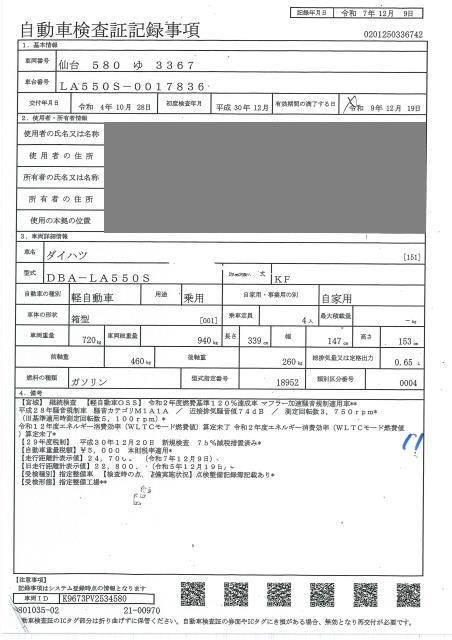 記録年月日 令和 7年12月 9日
自動車検査証記録事項
0201250336742
1．基本情報
車両番号 仙台 580 ゆ 3367
車台番号 LA550S-0017836
交付年月日 令和 4年10月28日 初度検査年月 平成30年12月 有効期間の満了する日 令和 9年12月19日
2．使用者・所有者情報
使用者の氏名又は名称
使用者の住所
所有者の氏名又は名称
所有者の住所
使用の本拠の位置
3．車両詳細情報
車名 ダイハツ [151]
型式 DBA-LA550S 式 KF
自動車の種別 軽自動車 用途 乗用 自家用・事業用の別 自家用
車体の形状 箱型 [001] 乗車定員 4人 最大積載量 -kg
車両重量 720kg 車両総重量 940kg 長さ 339cm 幅 147cm 高さ 153cm
前軸重 460kg 後軸重 260kg 総排気量又は定格出力 0.65 L
燃料の種類 ガソリン 型式指定番号 18952 類別区分番号 0004
4．備考
【宮城】 継続検査 【軽自動車OSS】 令和2年度燃費基準120%達成車 マフラー加速騒音規制適用車**
平成28年騒音規制車 騒音カテゴリM1A1A ／ 近接排気騒音値74dB ／ 測定回転数3,750rpm*
(旧基準適用時測定回転数5,100rpm)*
令和12年度エネルギー消費効率（WLTCモード燃費値）算定未了 令和2年度エネルギー消費効率（WLTCモード燃費値
）算定未了*
【29年度税制】 平成30年12月20日 新規検査 75%減税措置済み*
【自動車重量税額】¥5,000 本則税率適用*
【走行距離計表示値】24,70 (令和7年12月9日)
【旧走行距離計表示値】22,800 (令和5年12月19日)
【受検種別】指定整備車 【検査時の点 備実施状況】点検整備記録簿記載あり*
【受検形態】指定整備工場**
【注意事項】
記録事項はシステム登録時点の情報となります
車両ID K9673PV2534580
801035-02 21-00970
動車検査証のICタグ部分は折り曲げずに保管ください。自動車検査証の券面やICタグにき損がある場合、無効となり再交付が必要です。